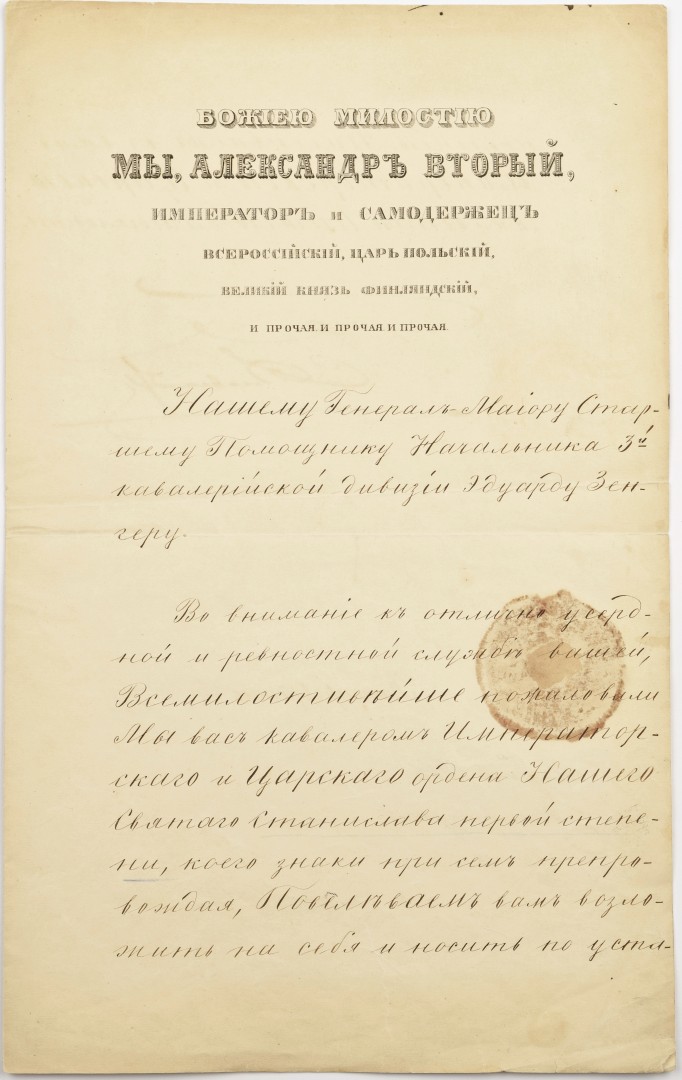 БОЖІЕЮ МИЛОСТІЮ
МЫ, АЛЕКСАНДРЪ ВТОРЫЙ,
ИМПЕРАТОРЪ и САМОДЕРЖЕЦЪ
ВСЕРОССІЙСКІЙ, ЦАРЬ ПОЛЬСКІЙ,
ВЕЛИКІЙ КНЯЗЬ ФИНЛЯНДСКІЙ,
И ПРОЧАЯ. И ПРОЧАЯ. И ПРОЧАЯ.
Нашему Генералъ-Маіору Стар-
шему Помощнику Начальника 3й
кавалерійской дивизіи Эдуарду Зен-
геру.
Во вниманіе къ отлично усерд-
ной и ревностной службѣ вашей,
Всемилостивѣйше пожаловали
Мы васъ кавалеромъ Император-
скаго и Царскаго ордена Нашего
Святаго Станислава первой степе-
ни, коего знаки при семъ препро-
вождая, Повелѣваемъ вамъ возло-
жить на себя и носить по уста-